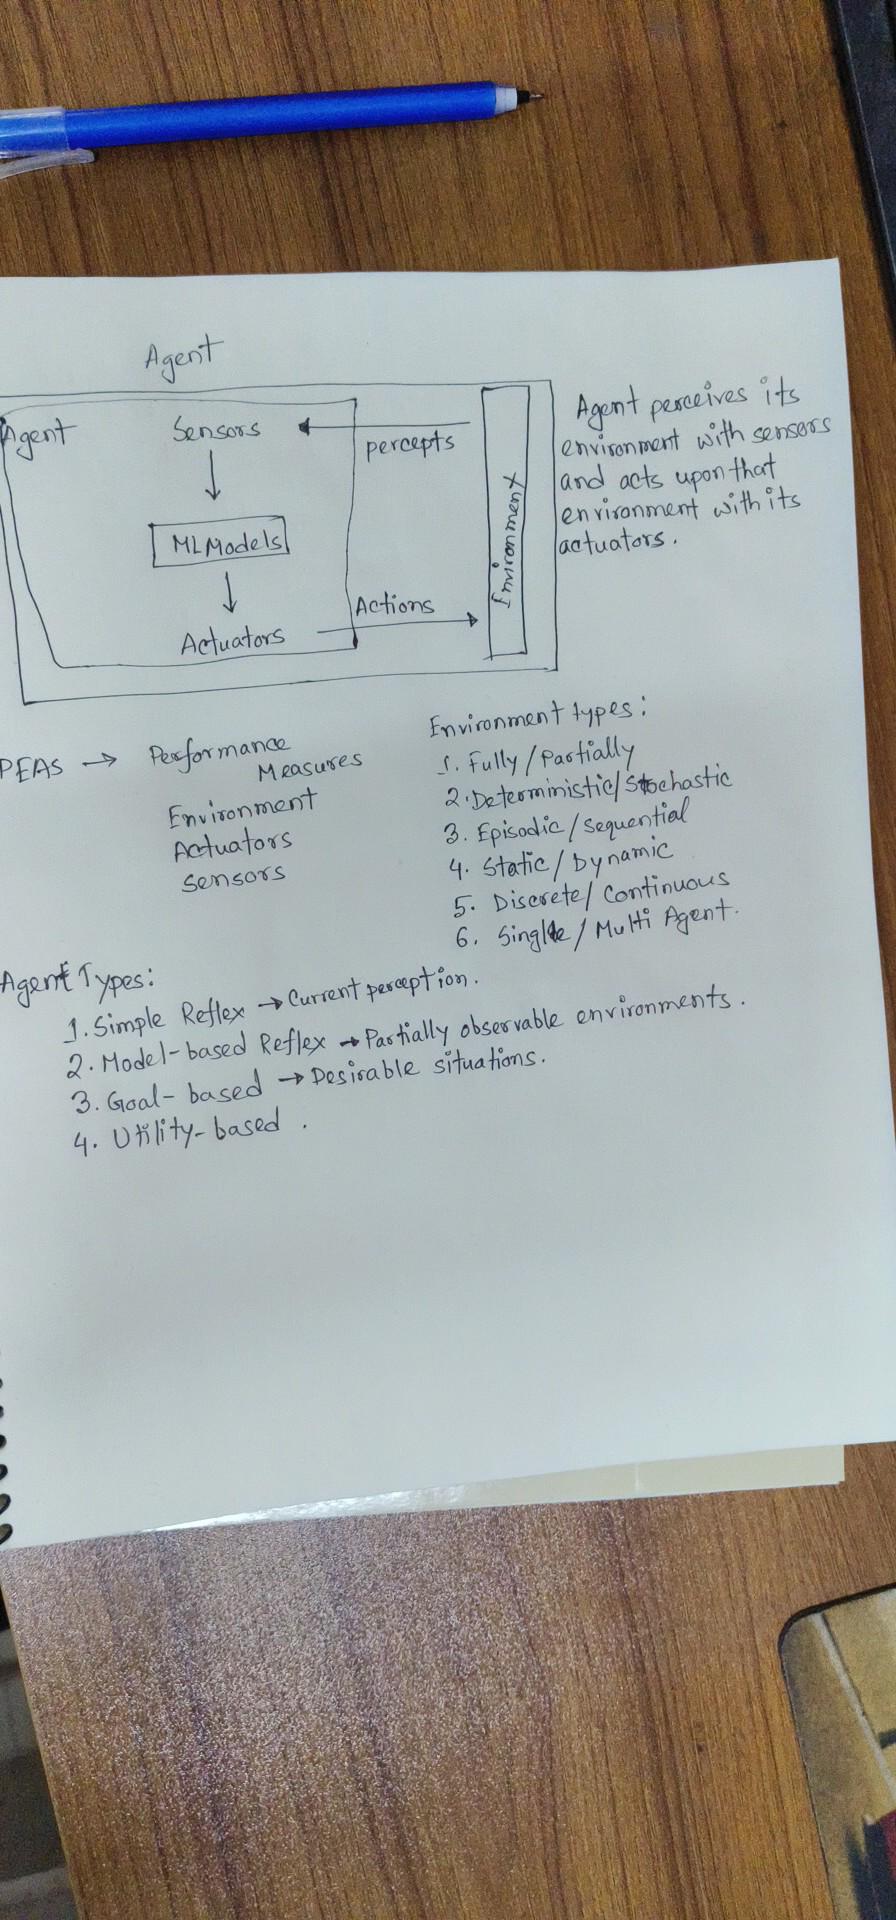 Agent
Agent
Sensors
percepts
MLModels
Actions
Actuators
Environment
Agent perceives its
environment with sensors
and acts upon that
environment with its
actuators.
PEAS → Performance
Measures
Environment
Actuators
Sensors
Environment types:
1. Fully / Partially
2. Deterministic / Stochastic
3. Episodic / Sequential
4. Static / Dynamic
5. Discrete / Continuous
6. Single / Multi Agent.
Agent Types:
1. Simple Reflex → Current perception.
2. Model-based Reflex → Partially observable environments.
3. Goal-based → Desirable situations.
4. Utility-based.